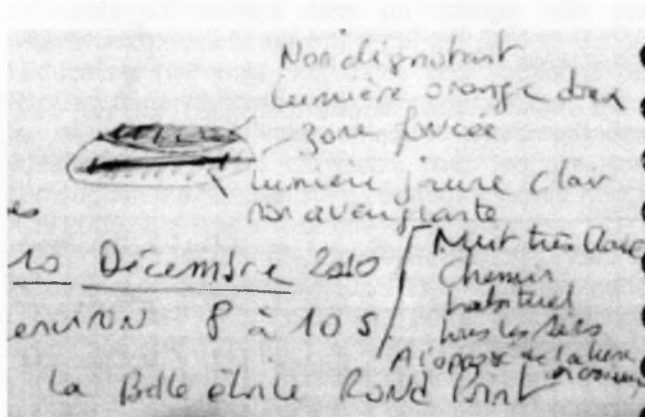 Non clignotant
lumière orange dans
zone foncée
lumière jaune clair
non aveuglante
10 Décembre 2010
environ 8 à 10 s
Nuit très claire
Chemin
habituel
tous les
A l'opposé de la lune
La Belle étoile Rond Point